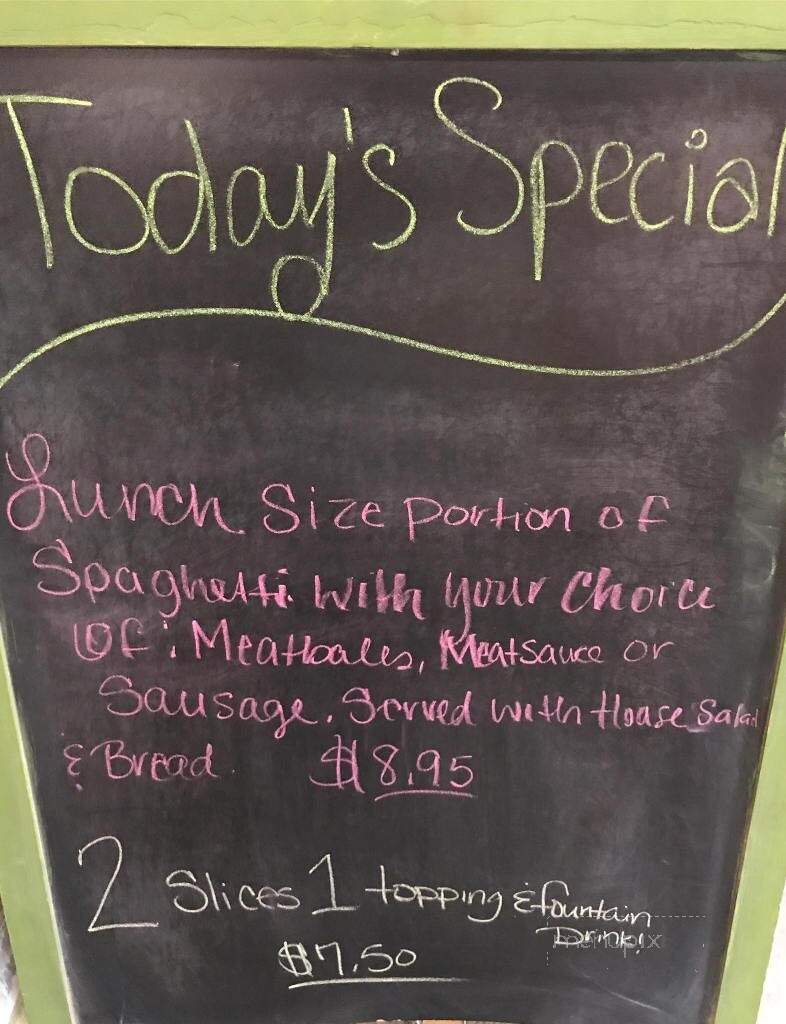 Today's Special
Lunch Size Portion of
Spaghetti with your choice
Of: Meatballs, Meatsauce or
Sausage. Served with House Salad
& Bread. $8.95
2 Slices 1 topping & fountain
Drink!
$7.50
menupix